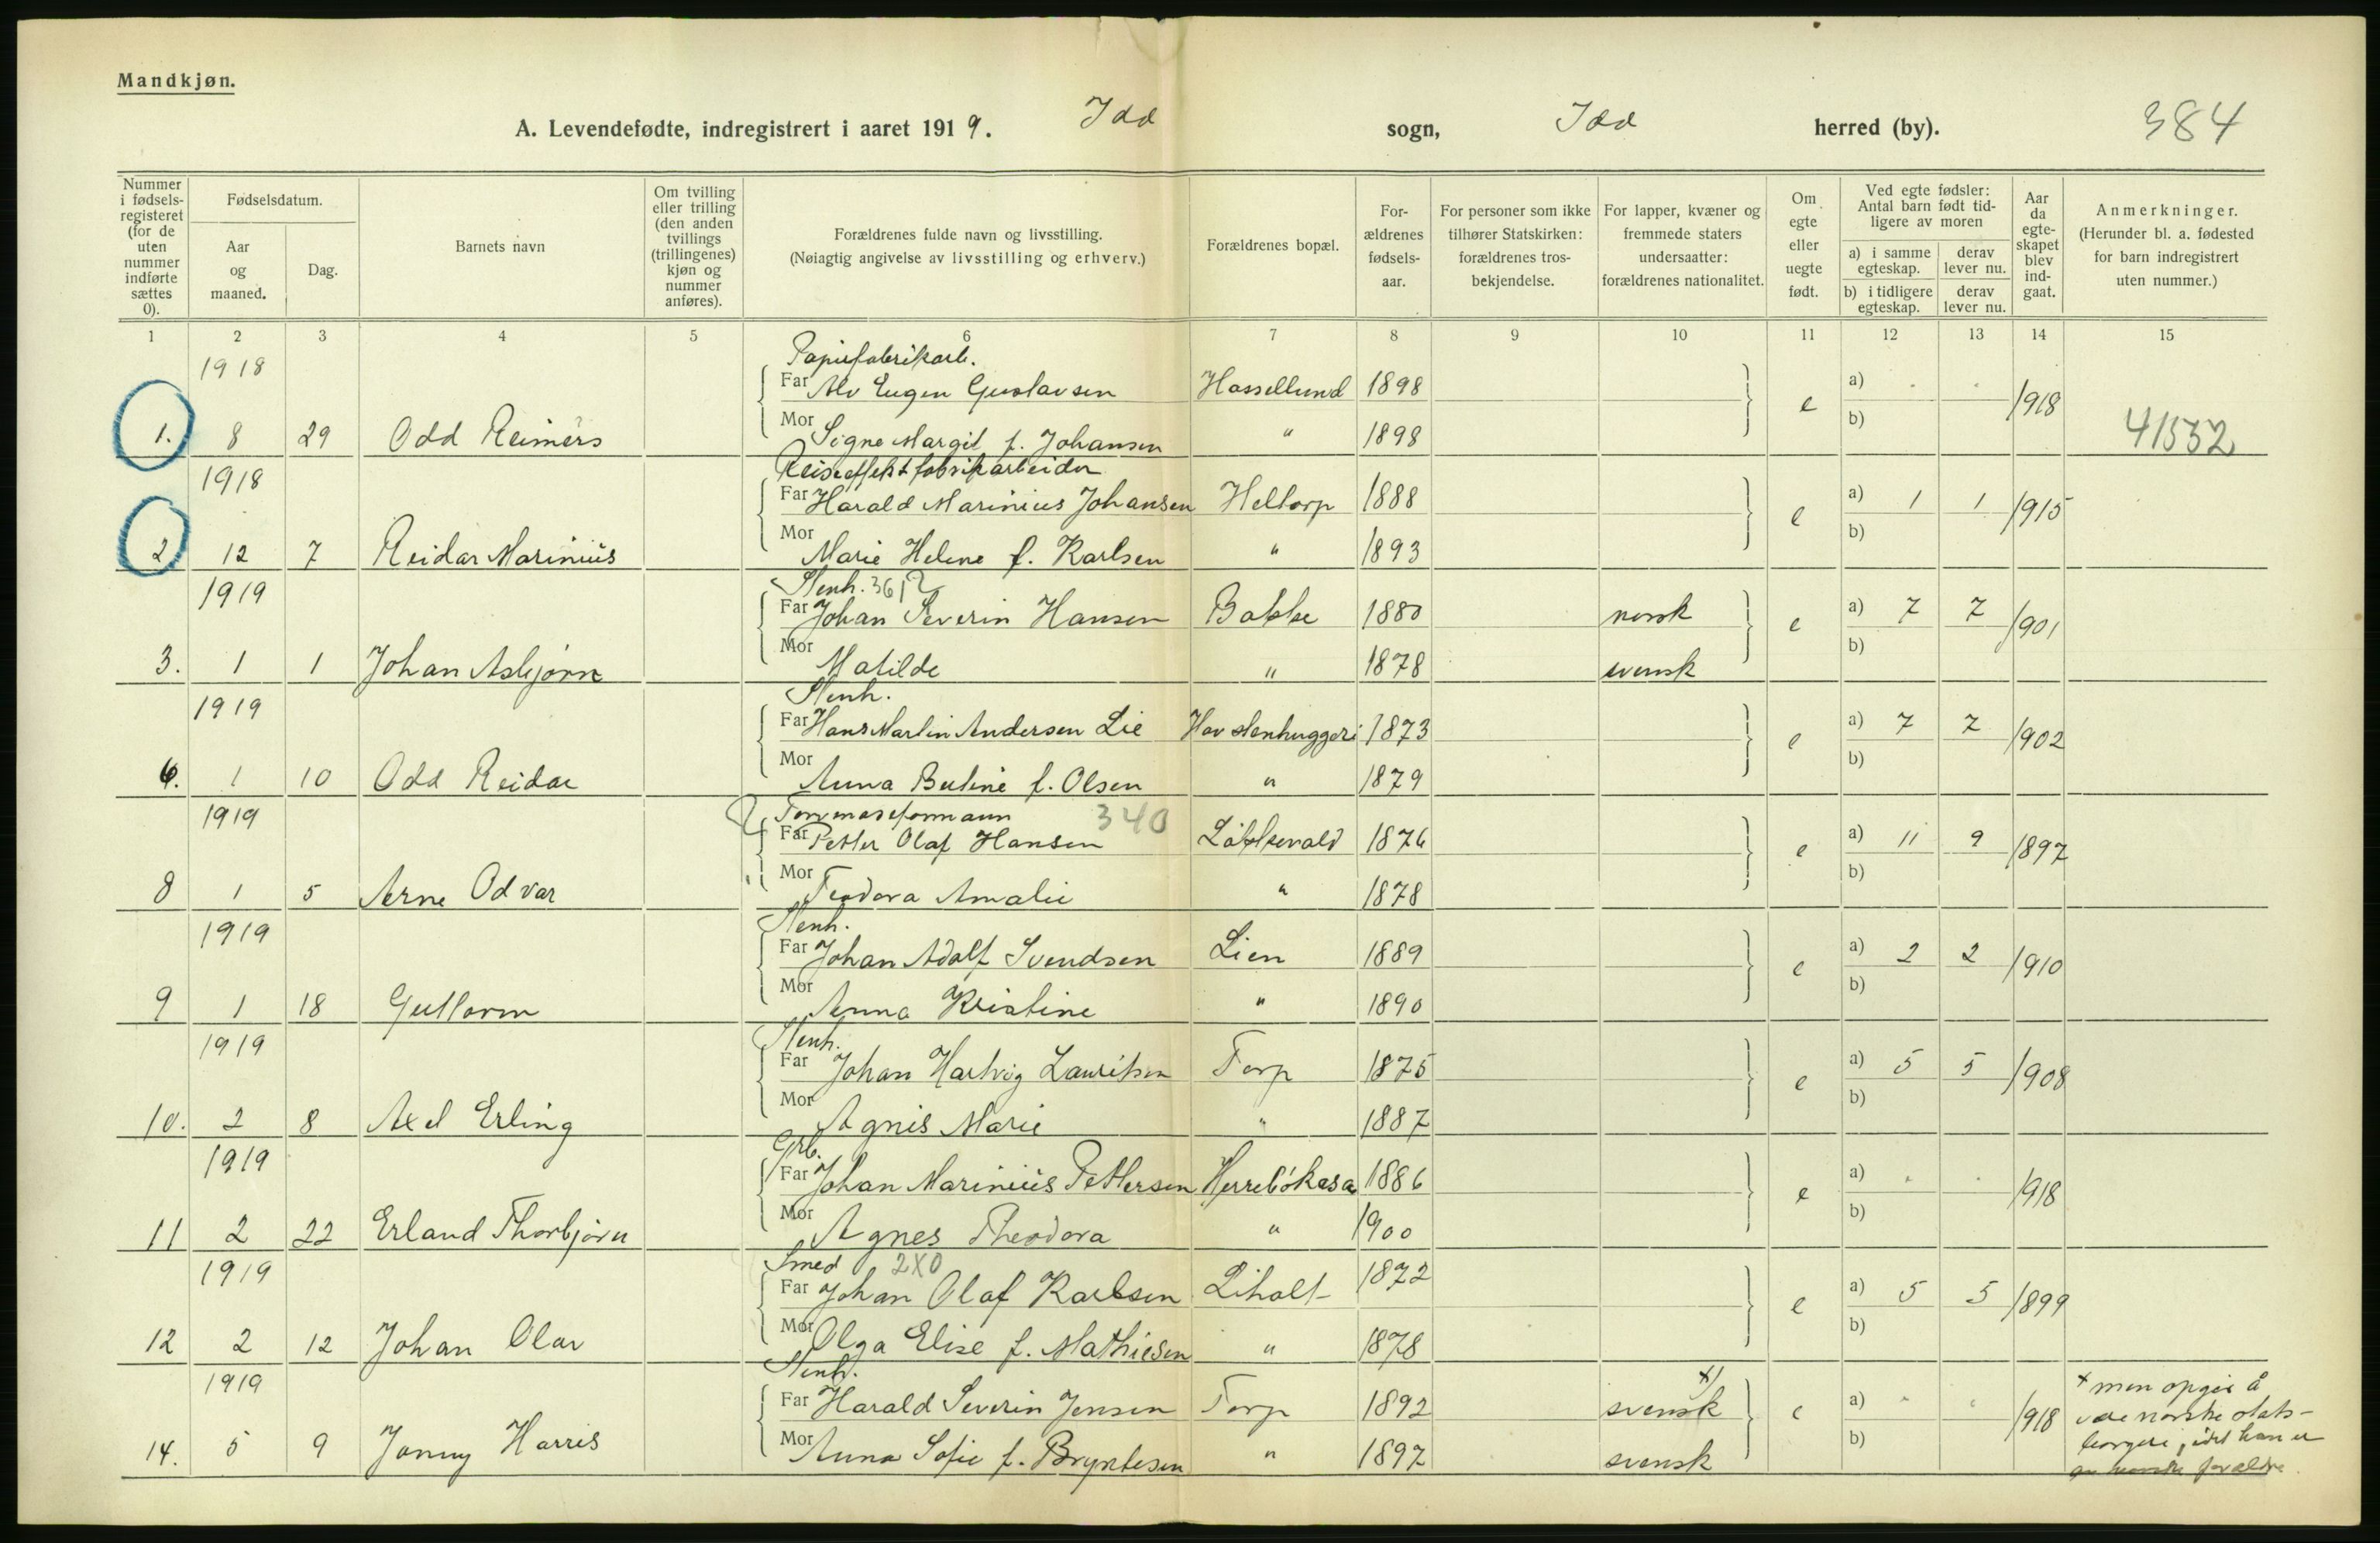 Mandkjøn.
A. Levendefødte, indregistrert i aaret 1919. Idd sogn, Idd herred (by). 384
Nummer i fødsels-registeret (for de uten nummer indførte sættes 0).
Fødselsdatum.
Aar og maaned.
Dag.
Barnets navn
Om tvilling eller trilling (den anden tvillings (trillingenes) kjøn og nummer anføres).
Forældrenes fulde navn og livsstilling.
(Nøiagtig angivelse av livsstilling og erhverv.)
Forældrenes bopæl.
For-ældrenes fødsels-aar.
For personer som ikke tilhører Statskirken: forældrenes tros-bekjendelse.
For lapper, kvæner og fremmede staters undersaatter: forældrenes nationalitet.
Om egte eller uegte født.
Ved egte fødsler: Antal barn født tid-ligere av moren
a) i samme egteskap. derav lever nu.
b) i tidligere egteskap. derav lever nu.
Aar da egte-skapet blev ind-gaat.
Anmerkninger.
(Herunder bl. a. fødested for barn indregistrert uten nummer.)
1 2 3 4 5 6 7 8 9 10 11 12 13 14 15
1918 Papirfabrikarb.
Far Alv Eugen Gustavsen Hassellund 1898 e a) 1918
1. 8 29 Odd Reimers Mor Signe Margit f. Johansen " 1898 b) 41552
1918 Reiseeffektfabrikarbeider
Far Harald Marinius Johansen Heltorp 1888 e a) 1 1 1915
2 12 7 Reidar Marinius Mor Marie Helene f. Karlsen " 1893 b)
1919 Stenh. 361
Far Johan Severin Hansen Bakke 1880 norsk e a) 7 7 1901
3. 1 1 Johan Asbjørn Mor Matilde " 1878 svensk b)
1919 Stenh.
Far Hans Martin Andersen Lie Hov stenhuggeri 1873 e a) 7 7 1902
6. 1 10 Odd Reidar Mor Anna Butine f. Olsen " 1879 b)
1919 Torvmaseformann 340
Far Petter Olaf Hansen Løkkevald 1876 e a) 11 9 1897
8 1 5 Arne Odvar Mor Teodora Amalie " 1878 b)
1919 Stenh.
Far Johan Adolf Svendsen Lien 1889 e a) 2 2 1910
9 1 18 Guttorm Mor Anna Kristine " 1890 b)
1919 Stenh.
Far Johan Hartvig Lauritsen Torp 1875 e a) 5 5 1908
10. 2 8 Axel Erling Mor Agnis Marie " 1887 b)
1919 Grb.
Far Johan Marinius Pettersen Herrebøkasa 1886 e a) 1918
11 2 22 Erland Thorbjørn Mor Agnes Theodora " 1900 b)
1919 Smed 2X0
Far Johan Olaf Karlsen Liholt 1872 e a) 5 5 1899
12 2 12 Johan Olav Mor Olga Elise f. Mathiesen " 1878 b)
1919 Stenh.
Far Harald Severin Jensen Torp 1892 svensk x) e a) 1918
14. 5 9 Jonny Harris Mor Anna Sofie f. Bryntesen " 1897 svensk b)
x men opgir å
være norske stats-
borgere, idet han er
av norske forældre.